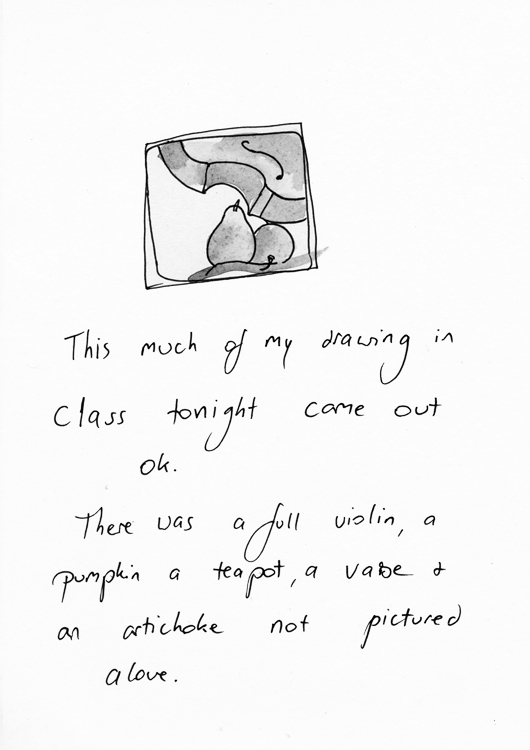 This much of my drawing in
class tonight came out
ok.
There was a full violin, a
pumpkin a teapot, a vase &
an artichoke not pictured
above.